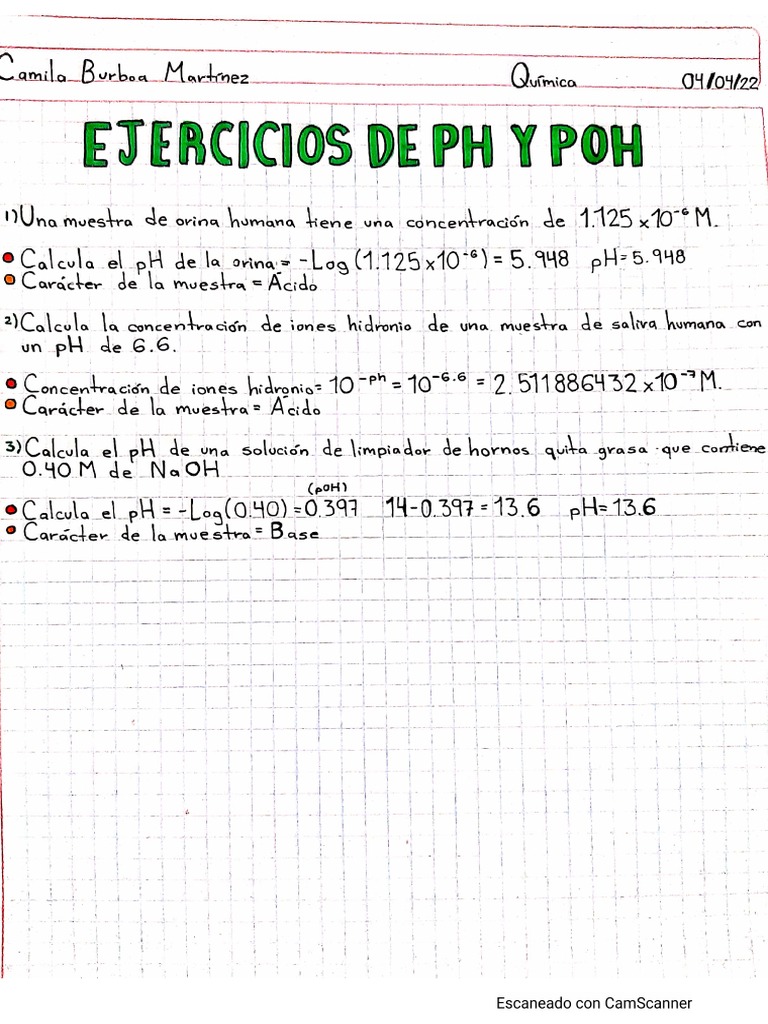 Camila Burboa Martínez Química 04/04/22
EJERCICIOS DE PH Y POH
1) Una muestra de orina humana tiene una concentración de 1.125 x10⁻⁶ M.
Calcula el pH de la orina = -Log (1.125 x10⁻⁶) = 5.948 pH= 5.948
Carácter de la muestra = Ácido
2) Calcula la concentración de iones hidronio de una muestra de saliva humana con
un pH de 6.6.
Concentración de iones hidronio= 10⁻ᵖʰ = 10⁻⁶·⁶ = 2.511886432 x10⁻⁷ M.
Carácter de la muestra = Ácido
3) Calcula el pH de una solución de limpiador de hornos quita grasa que contiene
0.40 M de NaOH
(pOH)
Calcula el pH = -Log(0.40) = 0.397 14-0.397 = 13.6 pH= 13.6
Carácter de la muestra = Base
Escaneado con CamScanner